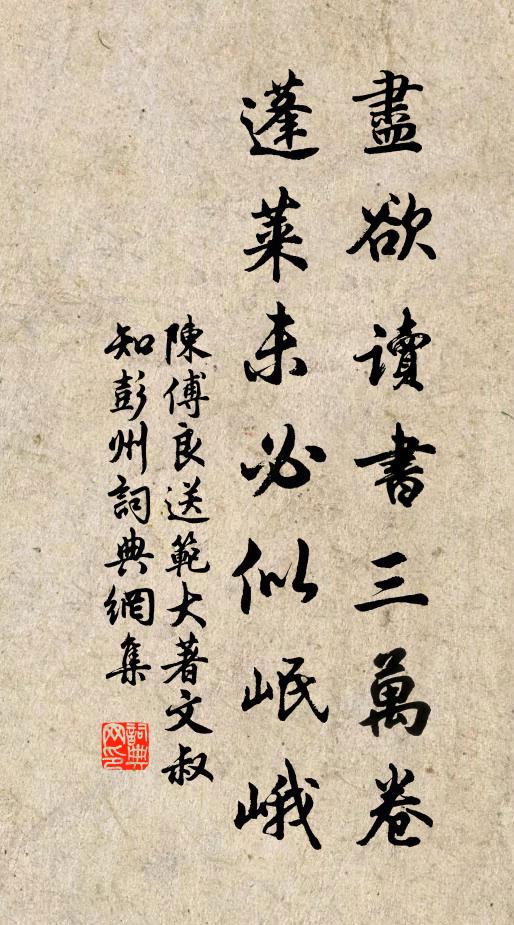 盡欲讀書三萬卷
蓬萊未必似岷峨
陳傅良送範大著文叔
知彭州詞典網集
詞典
网印